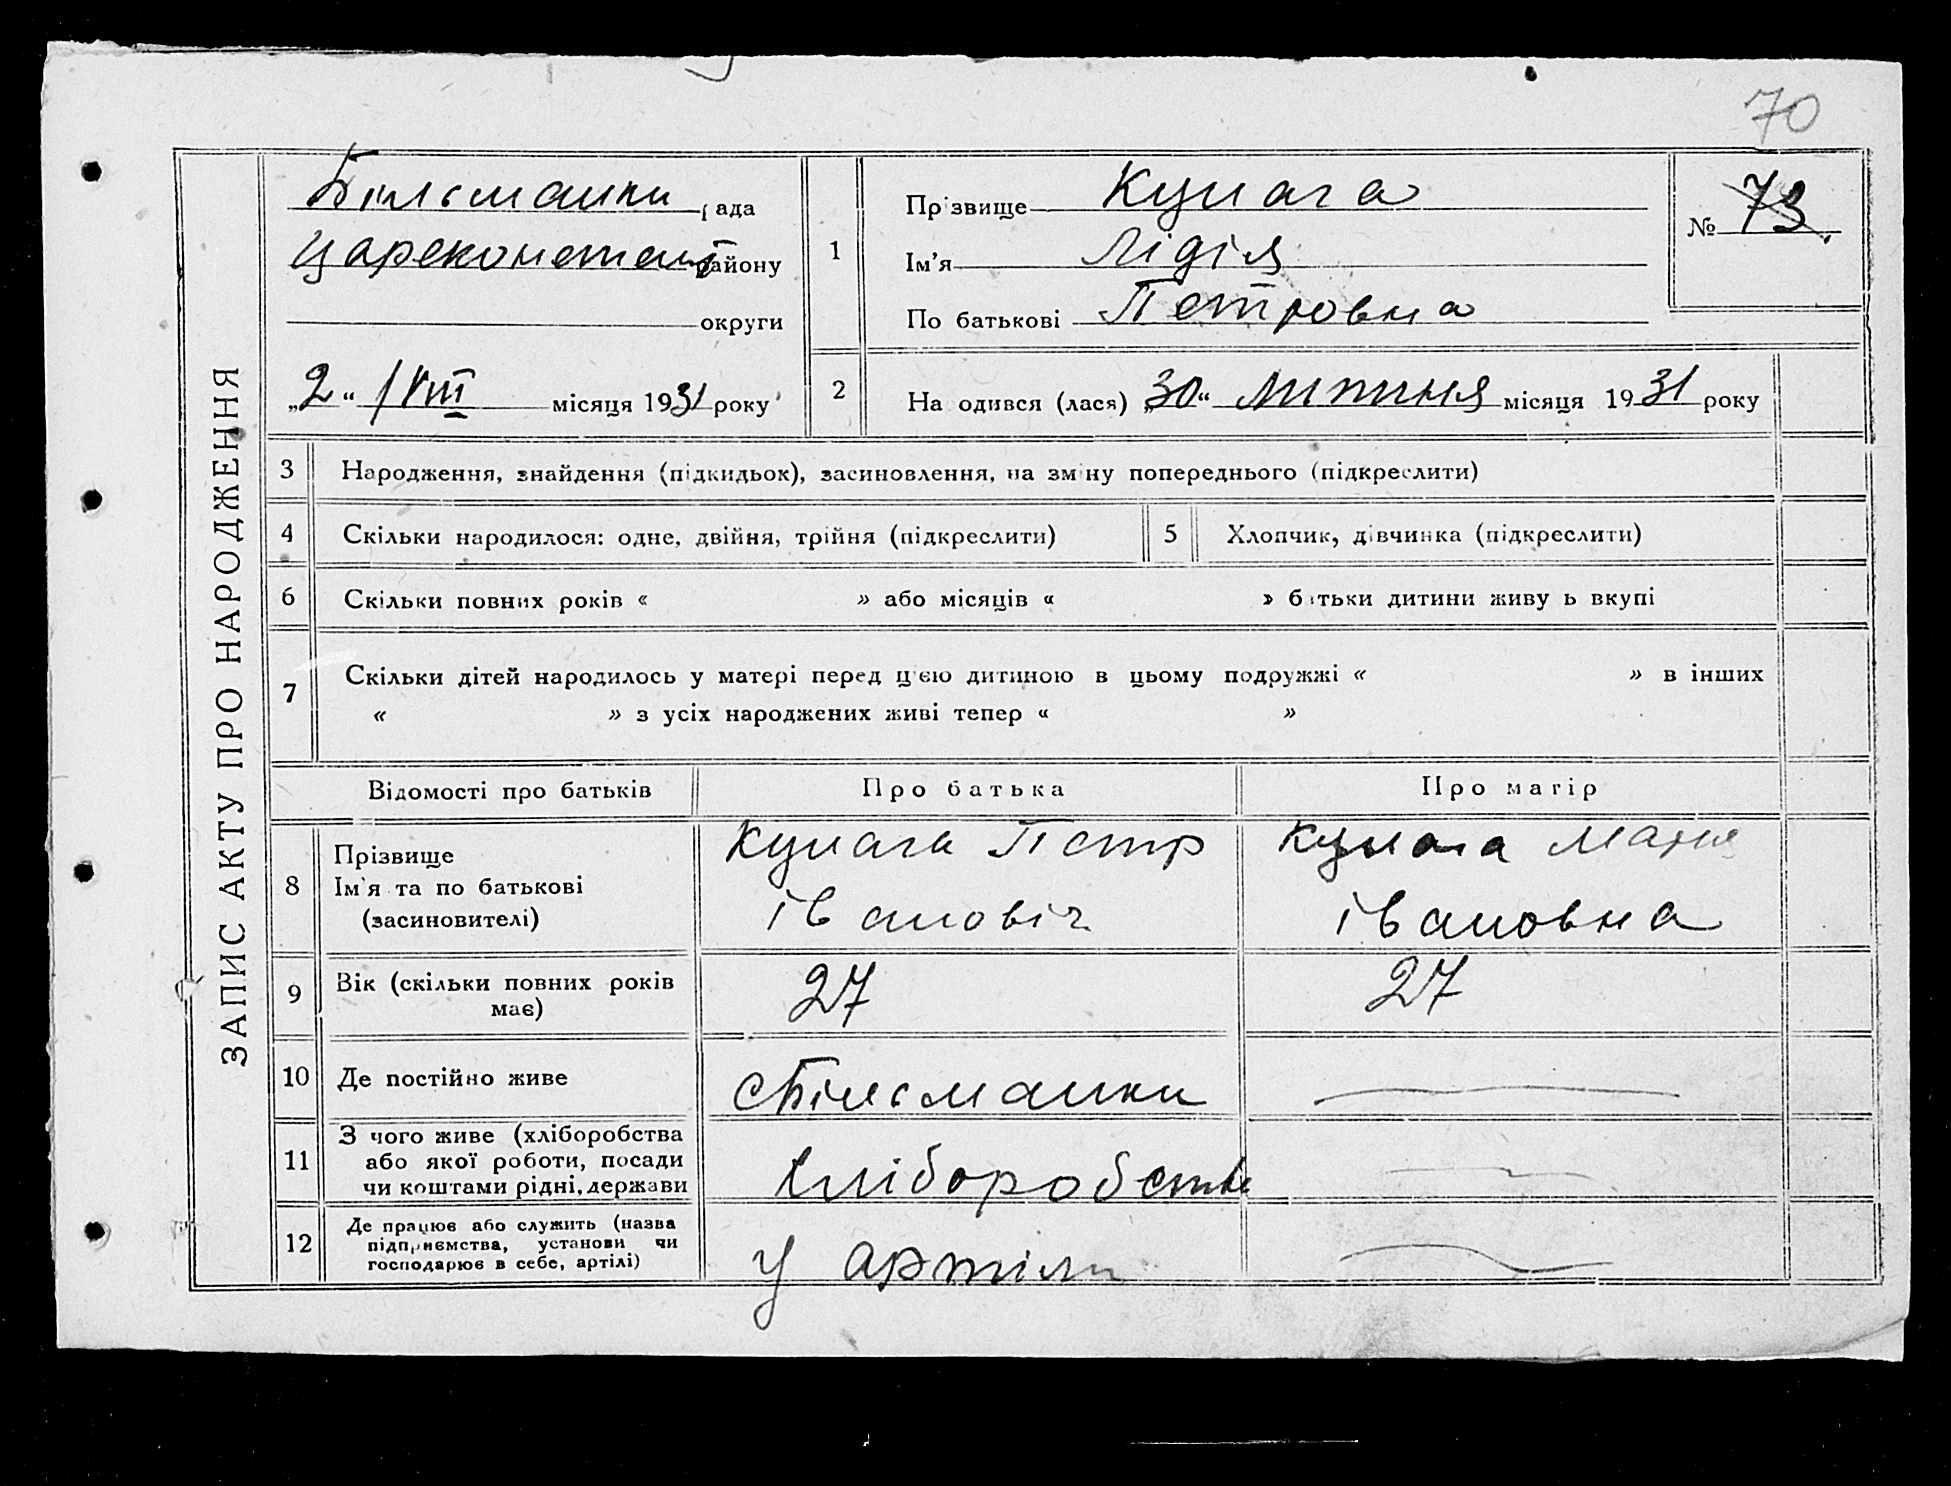 70
ЗАПИС АКТУ ПРО НАРОДЖЕННЯ
Більманки рада
району
округи
„2“ VIII місяця 1931 року
1
Прізвище Кулага
Ім’я Лідія
По батькові Петровна
№ 73.
2
На одився (лася) „30“ липня місяця 1931 року
3 Народження, знайдення (підкидьок), засиновлення, на зміну попереднього (підкреслити)
4 Скільки народилося: одне, двійня, трійня (підкреслити)
5 Хлопчик, дівчинка (підкреслити)
6 Скільки повних років « » або місяців « » батьки дитини живу ь вкупі
7 Скільки дітей народилось у матері перед цією дитиною в цьому подружжі « » в інших
« » з усіх народжених живі тепер « »
Відомості про батьків Про батька Про матір
8 Прізвище
Ім’я та по батькові
(засиновителі)
Кулага Петр
івановіч
Кулага Мария
івановна
9 Вік (скільки повних років
має)
27 27
10 Де постійно живе
с Більманки
11 З чого живе (хліборобства
або якої роботи, посади
чи коштами рідні, держави
хліборобств
12 Де працює або служить (назва
підприємства, установи чи
господарює в себе, артілі)
у артіли